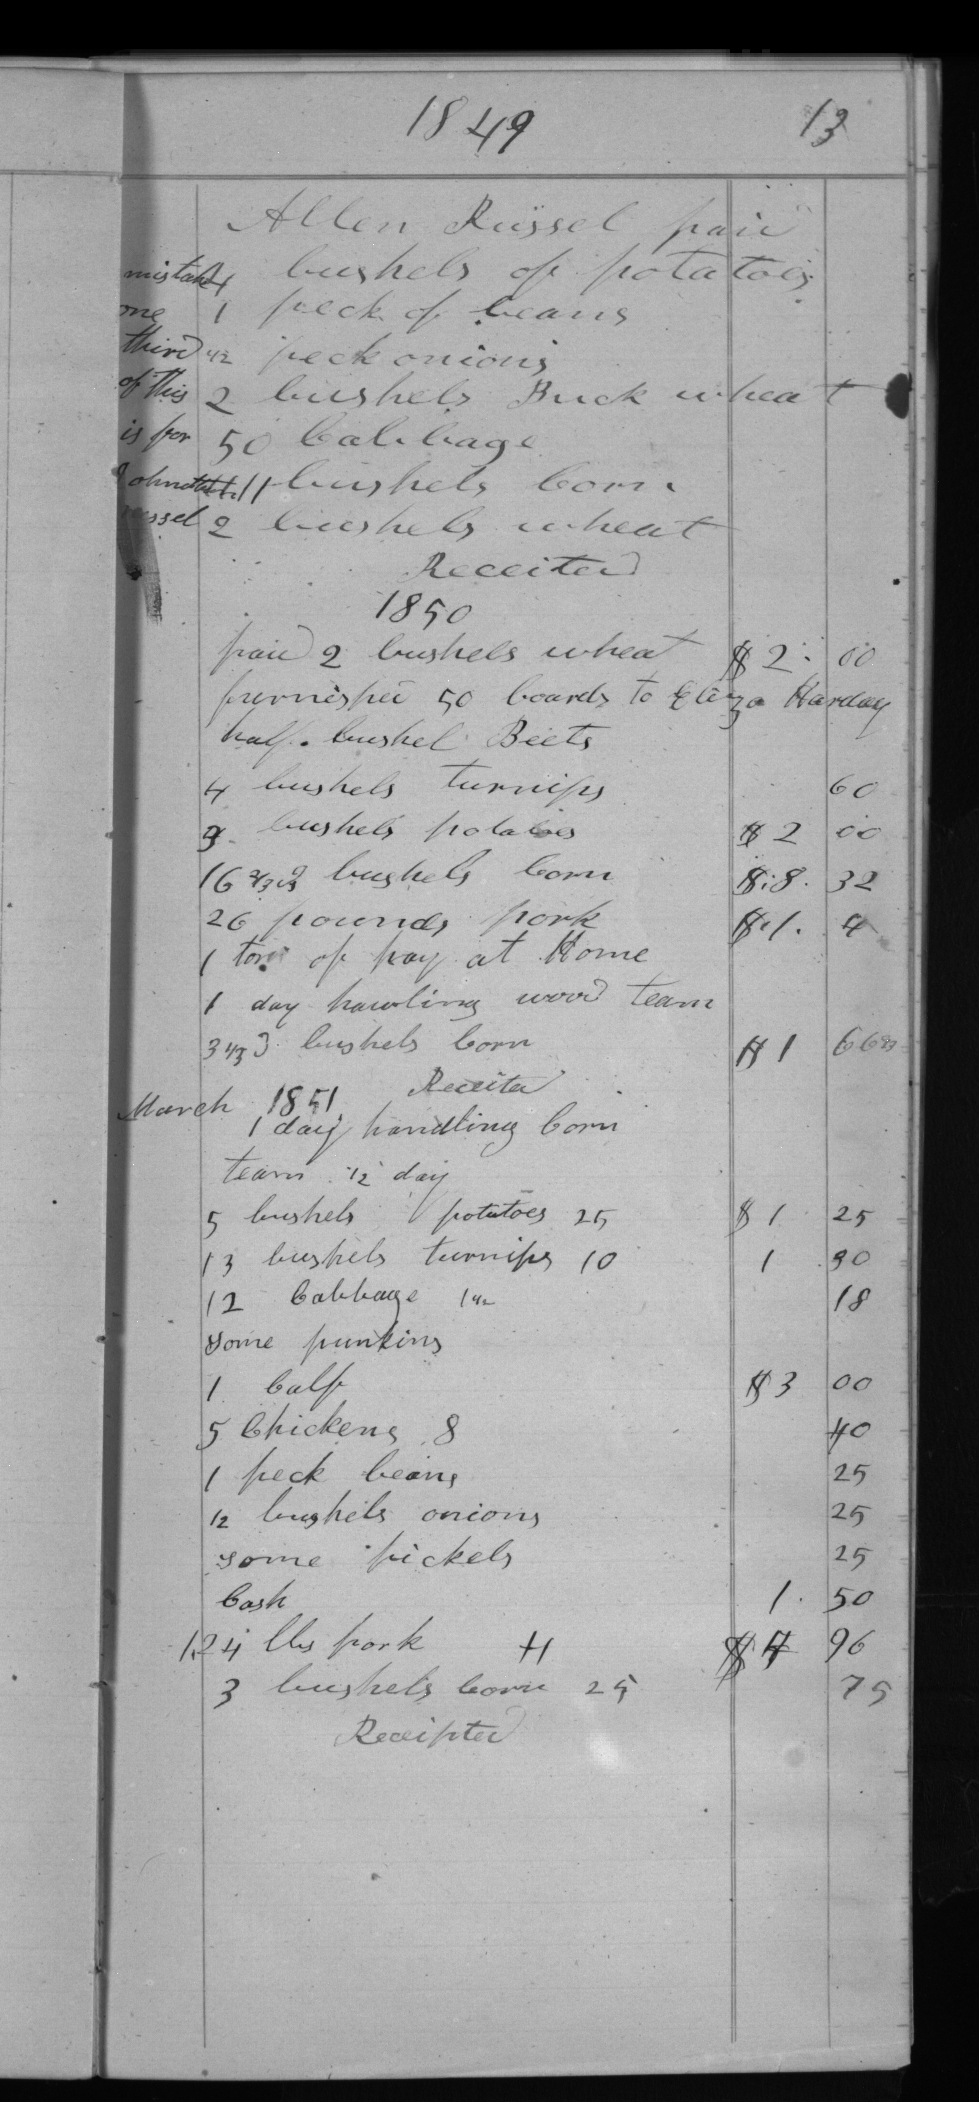 1849 13
Allen Russel paid
mistake 4 bushels of potatoes
one 1 peck of beans
third 1/2 peck onions
of this 2 bushels Buck wheat
is for 50 Cabbage
11 bushels Corn
Russel 2 bushels wheat
Receited
1850
paid 2 bushels wheat $ 2. 00
furnished 50 boards to Eliza Harday
half bushel Beets
4 bushels turnips 60
bushels potatoes $ 2 00
16 2/3 bushels Corn $ 8. 32
26 pounds pork $ 1. 4
1 ton of hay at Home
1 day hawling wood team
3 1/3 bushels Corn $ 1 66
Receited
March 1851
1 day handling Corn
team 1/2 day
5 bushels potatoes 25 $ 1 25
13 bushels turnips 10 1 30
12 Cabbage 1 1/2 18
some punkins
1 Calf $ 3 00
5 Chickens 8 40
1 peck beans 25
1/2 bushels onions 25
some pickels 25
Cash 1. 50
124 lbs pork 4 $ 4 96
3 bushels Corn 25 75
Receipted